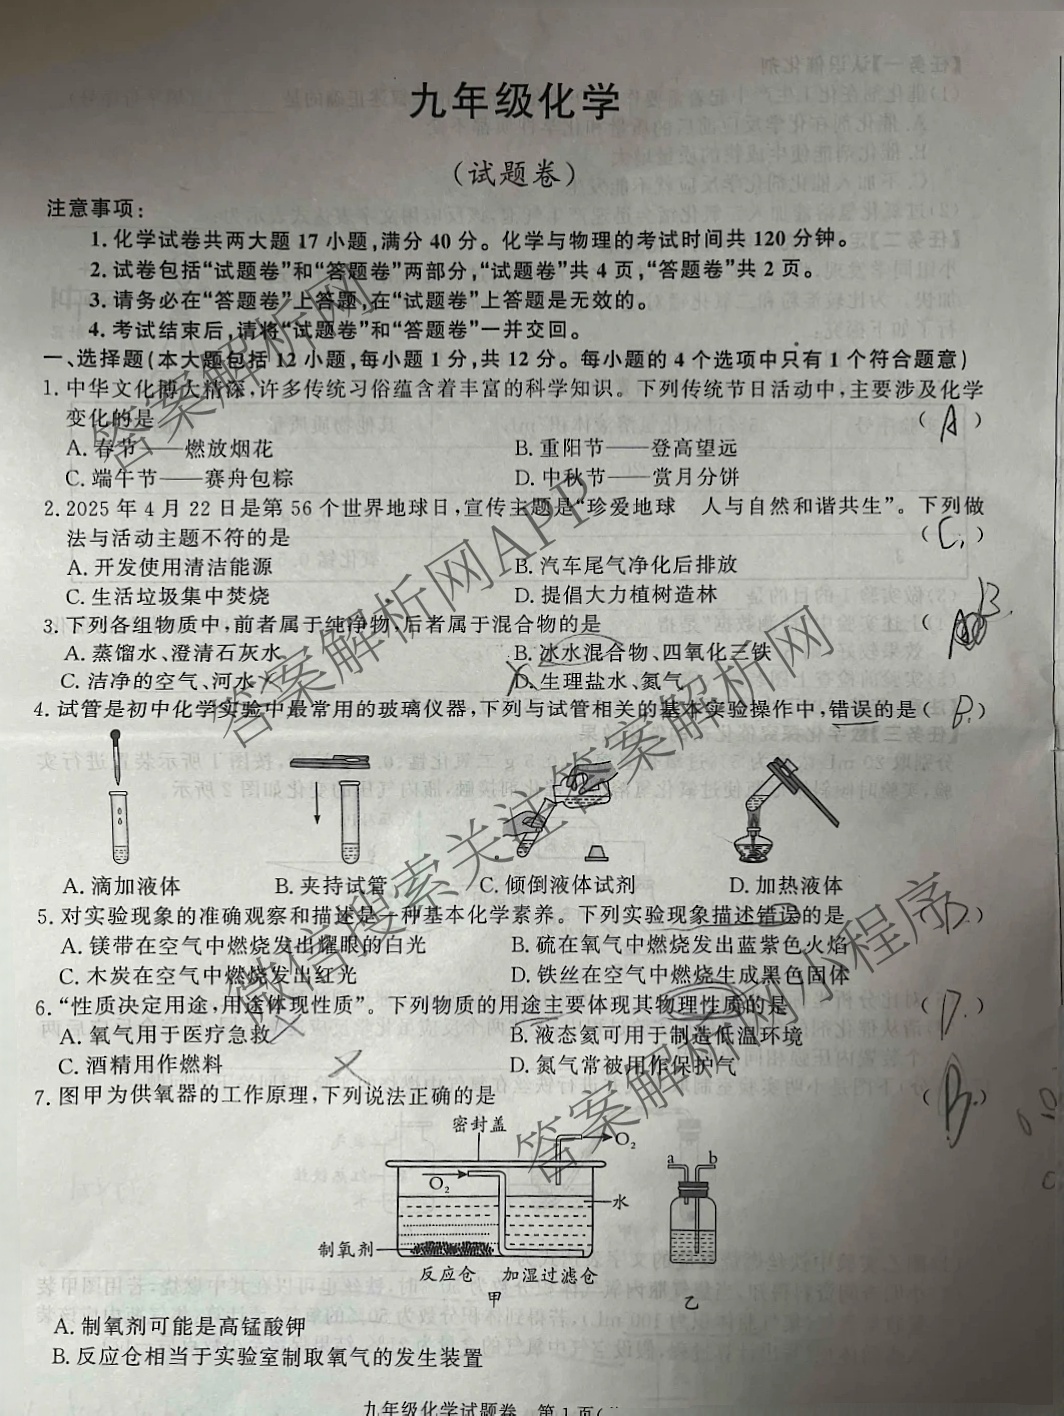 九年级化学
(试题卷)
注意事项:
1.化学试卷共两大题17小题,满分40分。化学与物理的考试时间共120分钟。
2.试卷包括“试题卷”和“答题卷”两部分,“试题卷”共4页,“答题卷”共2页。
3.请务必在“答题卷”上答题,在“试题卷”上答题是无效的。
4.考试结束后,请将“试题卷”和“答题卷”一并交回。
一、选择题(本大题包括12小题,每小题1分,共12分。每小题的4个选项中只有1个符合题意)
1.中华文化博大精深,许多传统习俗蕴含着丰富的科学知识。下列传统节日活动中,主要涉及化学
变化的是 ( A )
A.春节——燃放烟花 B.重阳节——登高望远
C.端午节——赛舟包粽 D.中秋节——赏月分饼
2.2025年4月22日是第56个世界地球日,宣传主题是“珍爱地球 人与自然和谐共生”。下列做
法与活动主题不符的是 ( C )
A.开发使用清洁能源 B.汽车尾气净化后排放
C.生活垃圾集中焚烧 D.提倡大力植树造林
3.下列各组物质中,前者属于纯净物,后者属于混合物的是 ( B.
A.蒸馏水、澄清石灰水 B.冰水混合物、四氧化三铁
C.洁净的空气、河水 D.生理盐水、氮气
4.试管是初中化学实验中最常用的玻璃仪器,下列与试管相关的基本实验操作中,错误的是 ( B. )
A.滴加液体 B.夹持试管 C.倾倒液体试剂 D.加热液体
5.对实验现象的准确观察和描述是一种基本化学素养。下列实验现象描述错误的是 D. )
A.镁带在空气中燃烧发出耀眼的白光 B.硫在氧气中燃烧发出蓝紫色火焰
C.木炭在空气中燃烧发出红光 D.铁丝在空气中燃烧生成黑色固体
6.“性质决定用途,用途体现性质”。下列物质的用途主要体现其物理性质的是 ( D. )
A.氧气用于医疗急救 B.液态氦可用于制造低温环境
C.酒精用作燃料 D.氮气常被用作保护气
7.图甲为供氧器的工作原理,下列说法正确的是 ( B. )
密封盖
O₂
a b
O₂
水
制氧剂
反应仓 加湿过滤仓
甲 乙
A.制氧剂可能是高锰酸钾
B.反应仓相当于实验室制取氧气的发生装置
九年级化学试题卷 第1页(
答案解析网
答案解析网APP
微信搜索关注答案解析网
答案解析网小程序